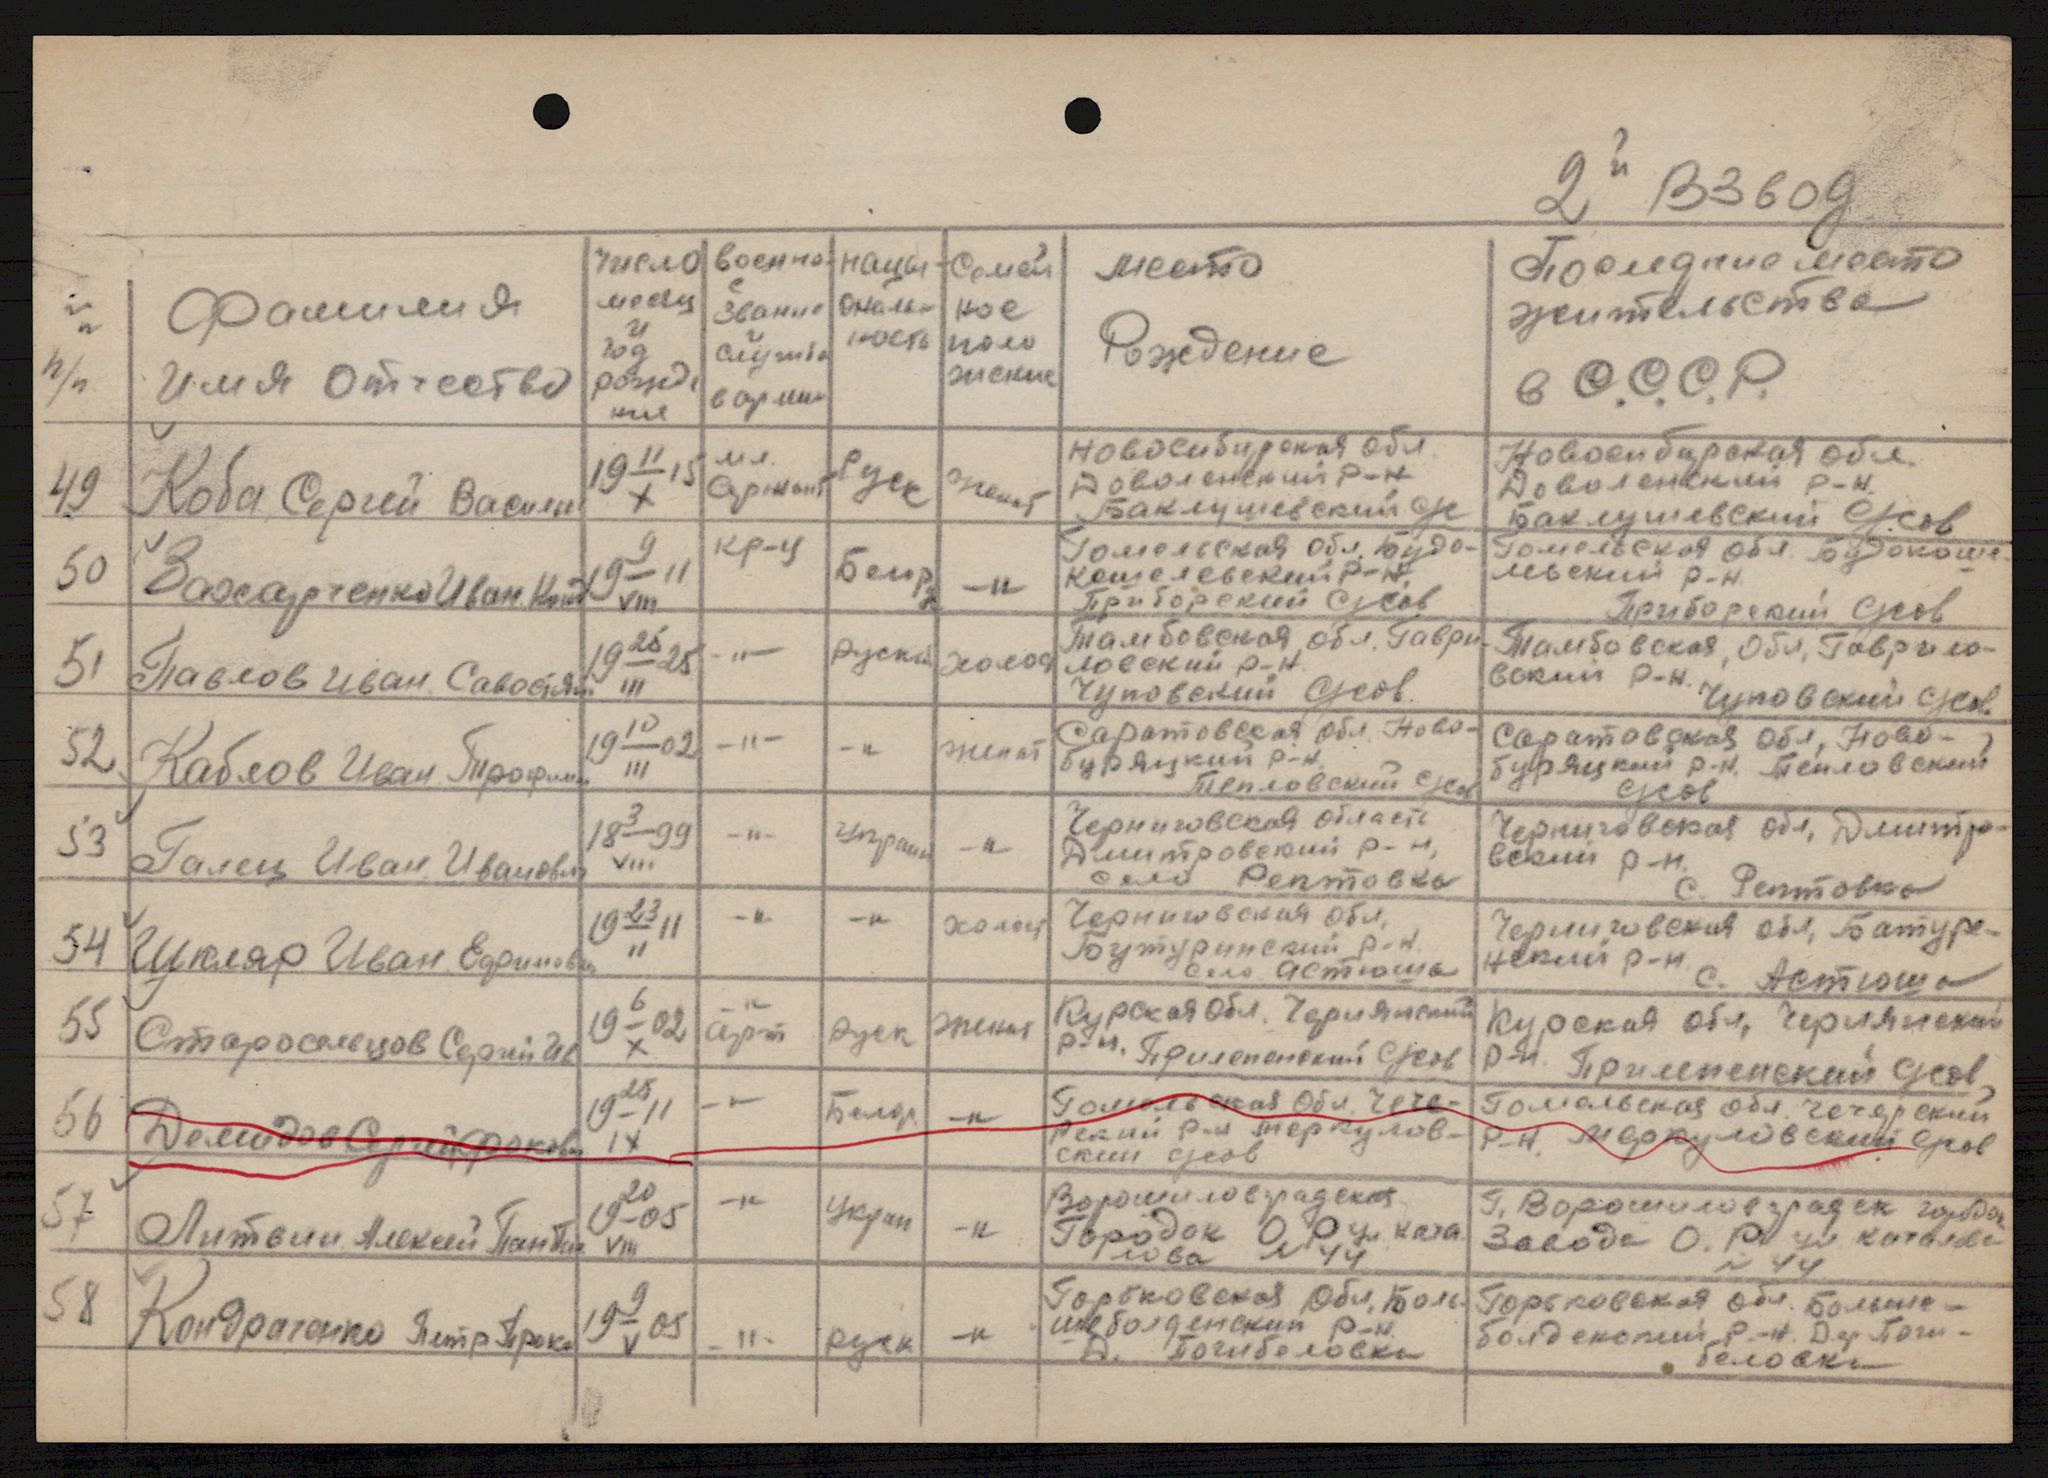 2й Взвод
п/п
Фамилия
имя отчество
число месяц и год рожде ния
военно е звание и служба в армии
нацы- ональ- ность
Семей ное поло жение
место Рождение
Последние место жительства в С.С.С.Р.
49 Коба Сергий Василь 19 11/X 15 мл. Сержант Руск женат Новосибирская обл. Доволенский р-н Баклушевский с/с Новосибирская обл. Доволенский р-н. Баклушевский с/сов
50 Захарченко Иван 19 9/VIII 11 кр-ц Белор -"- Гомельская обл. Будо- кошелевский р-н, Приборский с/сов Гомельская обл. Будокоше- левский р-н Приборский с/сов
51 Павлов Иван Савостян 19 25/III 25 -"- руский холост Тамбовская обл. Гаври- ловский р-н. Чуповский с/сов. Тамбовская, Обл, Гаврило- вский р-н. Чуповский с/сов.
52 Каблов Иван Трофими 19 10/III 02 -"- -"- женат Саратовская обл. Ново- буряцкий р-н. Тепловский с/сов Саратовская обл, Ново- буряцкий р-н. Тепловский с/сов
53 Галец Иван Иванович 18 3/VIII 99 -"- украин -"- Черниговская область Дмитровский р-н, село Рептовка Черниговская обл, Дмитро- вский р-н. с. Рептовка
54 Шкляр Иван Ефимович 19 23/II 11 -"- -"- холост Черниговская обл, Бутуринский р-н. село Астюша Черниговская обл, Батуре- нский р-н с. Астюша
55 Старосельцов Сергий Ив 19 6/X 02 -"- арт руск женат Курская Обл. Чернянский р-н. Прилепенский с/сов Курская обл, Чернянский р-н. Прилепенский с/сов
56 Демидов Сергий Фокови 19 25/IX 11 -"- Белор. -"- Гомельская обл. Чече- рский р-н Меркулов- ский с/сов Гомельская обл. Чечерский р-н. Меркуловский с/сов
57 Литвин Алексий 19 20/VIII 05 -"- украин -"- Ворошиловградская Городок О.Р ул ката лова N 44 Г. Ворошиловградск городок Завода О.Р. ул каталова N 44
58 Кондратенко Петр Проко 19 9/V 05 -"- руск -"- Горьковская обл, Боль- шеболденский р-н Д. Погибеловка Горьковская обл. Больше- болденский р-н. Дер Поги- беловка